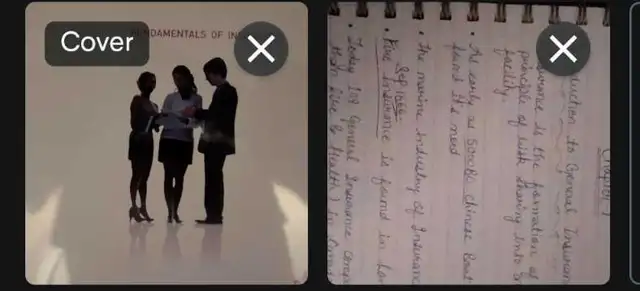 Cover
FUNDAMENTALS OF IN
Chapter 1
duction to General Insuran
surance is the formation of
principle of risk sharing into
facility.
The early as 5000BC Chinese Boat
found its need
The marine industry of Insuranc
Sep 1666
Fire Insurance is found in Lon
Today 109 General Insurance Comp
than Live & Health) in Canad